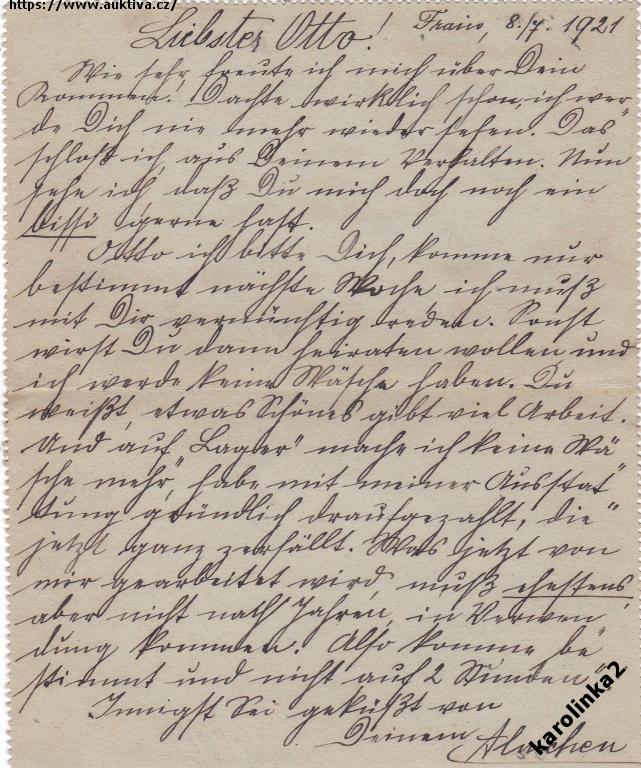 https://www.auktiva.cz/
Frain, 8./7. 1921
Liebster Otto!
Wie sehr freute ich mich über Dein
Kommen! Dachte wirklich schon, ich wer"
de Dich nie mehr wieder sehen. Das
schloß ich aus Deinem Verhalten. Nun
sehe ich, daß Du mich doch noch ein
bissi gerne hast.
Otto ich bitte Dich, komme nur
bestimmt nächste Woche, ich muß
mit Dir vernünftig reden. Sonst
wirst Du dann heiraten wollen und
ich werde keine Wäsche haben. Du
weißt, etwas Schönes gibt viel Arbeit.
Und auf „Lager" mache ich keine Wä"
sche mehr, habe mit meiner Ausstat"
tung gründlich draufgezahlt, die
jetzt ganz zerfällt. Was jetzt von
mir gearbeitet wird, muß ehestens,
aber nicht nach Jahren, in Verwen"
dung kommen. Also komme be"
stimmt und nicht auf 2 Stunden.
Innigst Sei geküßt von
Deinem
karolinka2